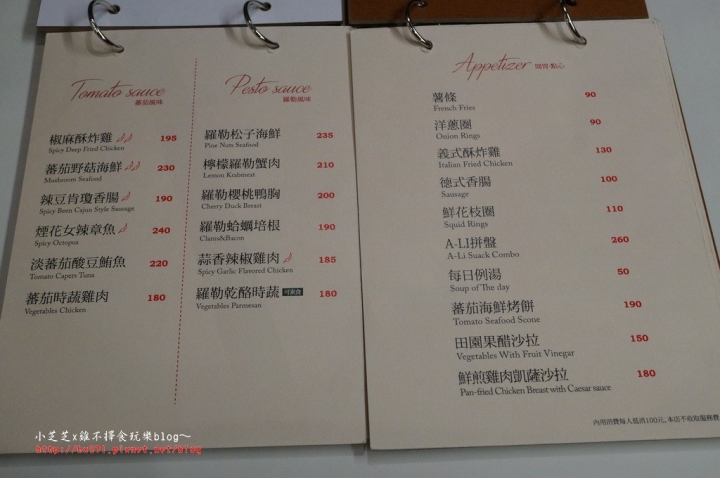 Tomato sauce
蕃茄風味
椒麻酥炸雞 195
Spicy Deep Fried Chicken
蕃茄野菇海鮮 230
Mushroom Seafood
辣豆肯瓊香腸 190
Spicy Been Cajun Style Sausage
煙花女辣章魚 240
Spicy Octopus
淡蕃茄酸豆鮪魚 220
Tomato Capers Tuna
蕃茄時蔬雞肉 180
Vegetables Chicken
Pesto sauce
羅勒風味
羅勒松子海鮮 235
Pine Nuts Seafood
檸檬羅勒蟹肉 210
Lemon Krabmeat
羅勒櫻桃鴨胸 200
Cherry Duck Breast
羅勒蛤蠣培根 190
Clams&Bacon
蒜香辣椒雞肉 185
Spicy Garlic Flavored Chicken
羅勒乾酪時蔬 可素食 180
Vegetables Parmesan
Appetizer 開胃‧點心
薯條 90
French Fries
洋蔥圈 90
Onion Rings
義式酥炸雞 130
Italian Fried Chicken
德式香腸 100
Sausage
鮮花枝圈 110
Squid Rings
A-LI拼盤 260
A-Li Suack Combo
每日例湯 50
Soup of The day
蕃茄海鮮烤餅 190
Tomato Seafood Scone
田園果醋沙拉 150
Vegetables With Fruit Vinegar
鮮煎雞肉凱薩沙拉 180
Pan-fried Chicken Breast with Caesar sauce
內用消費每人低消100元,本店不收取服務費
小芝芝x雜不擇食玩樂blog～